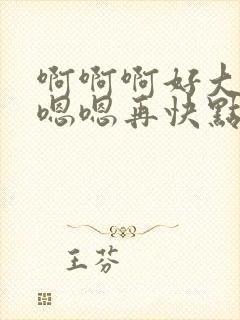 啊啊啊好大
嗯嗯再快點
王芬